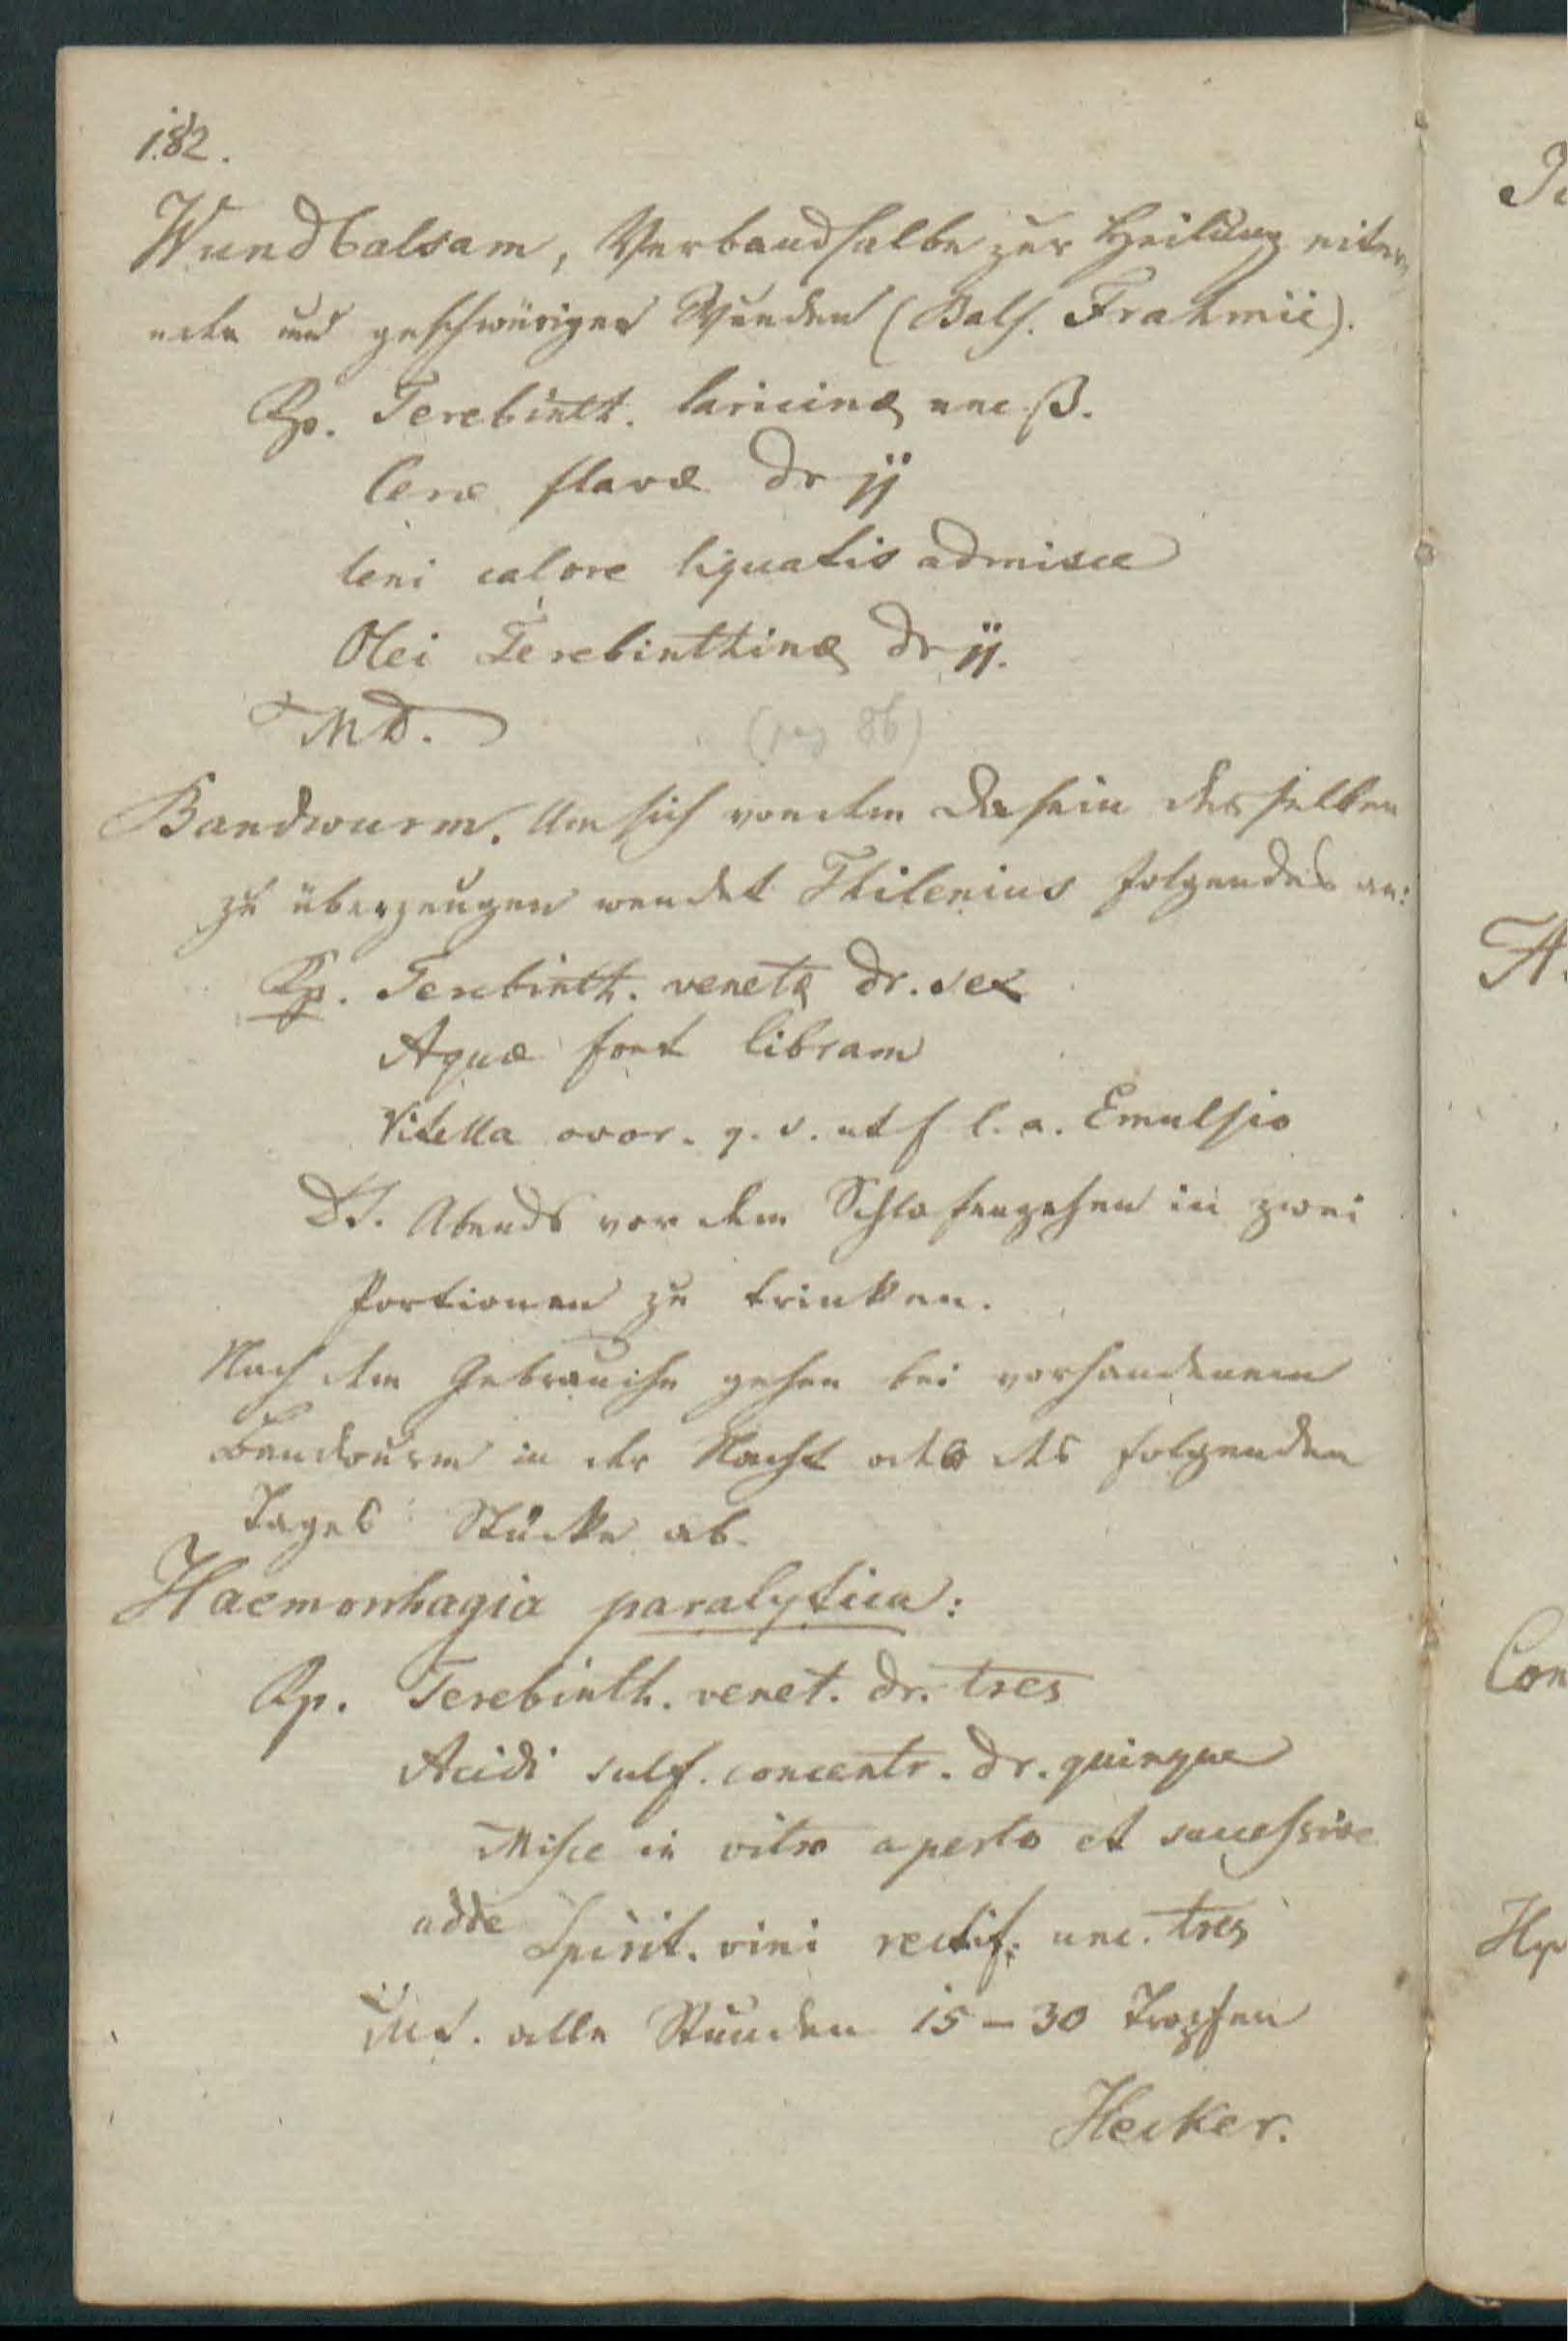 182.
Wundbalsam, Verbandsalbe zur Heilung eitern
der und geschwüriger Wunden (Bals. Frahmii).
Rp. Terebinth. laricinæ unc ß.
Ceræ flavæ dr jj
leni calore liquatis admisce
Olei Terebinthinæ dr jj.
MD.
(pag 86)
Bandwurm. Um sich von dem Dasein desselben
zu überzeugen wendet Thilenius folgendes an:
Rp. Terebinth. venetæ dr. sex
Aquæ font libram
Vitella ovor. q. s. ut f l. a. Emulsio
DS. Abends vor dem Schlafengehen in zwei
Portionen zu trinken.
Nach dem Gebrauche gehen bei vorhandenem
Bandwurm in der Nacht oder des folgenden
Tages Stücke ab.
Haemorrhagia paralytica:
Rp. Terebinth. venet. dr. tres
Acidi sulf. concentr. dr. quinque
Misce in vitro aperto et successive
adde Spirit. vini rectif. unc. tres
MS. alle Stunden 15 – 30 Tropfen
Hecker.
Con
Hy